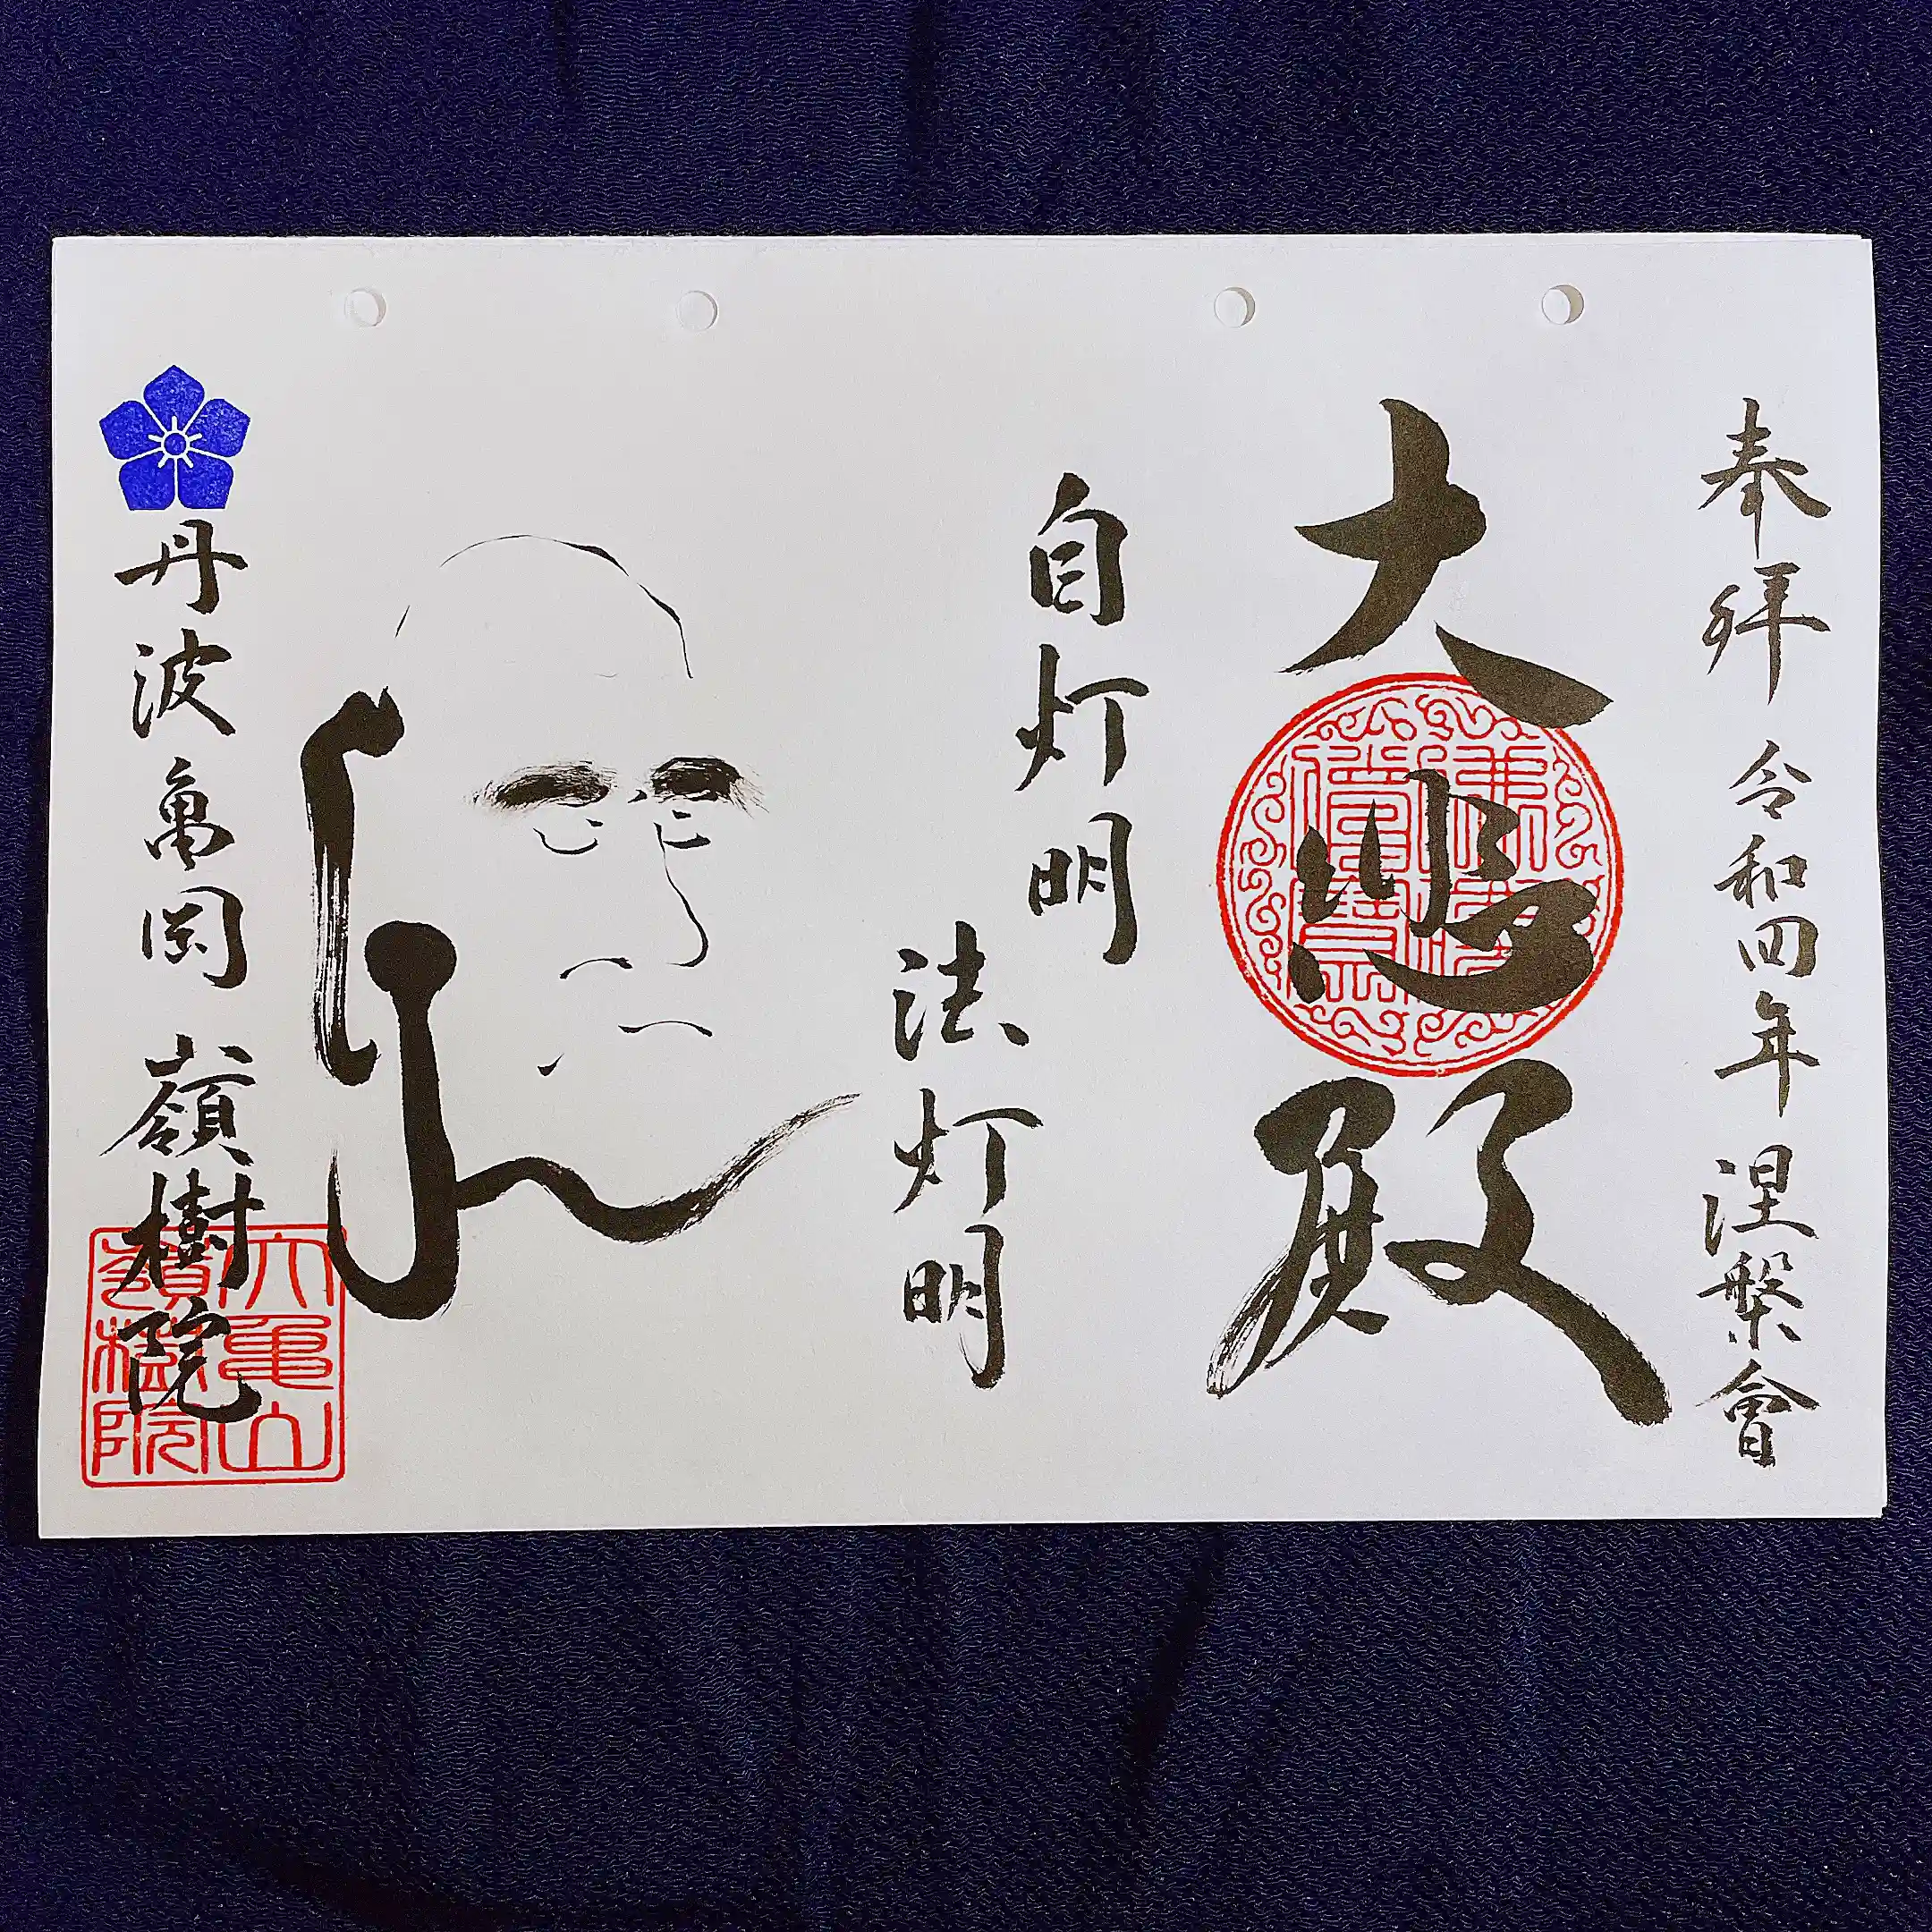 奉拝 令和四年 涅槃會
大悲殿
自灯明
法灯明
丹波亀岡 嶺樹院
大亀山
嶺樹院